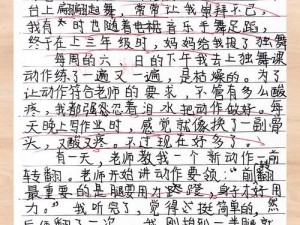 台上翩翩起舞，常常让我崇拜不已，
我有时也随着电视音乐手舞足蹈，
终于在上三年级时，妈妈给我报了独舞
每周的六日的下午我去上独舞课
动作练了一遍又一遍，是枯燥的。为了
让动作符合老师的要求，不管有多么酸
疼，我都强忍着泪水把动作做好。每
天晚上写作业时，感觉就像换了一副骨
头，又酸又疼。不过现在好多了。
有一天，老师教我一个新动作—前
转翻。老师开始讲动作要领："前翻
最重要的是腿要用力，身子才好用
力。"我听完了，觉得挺简单的，然